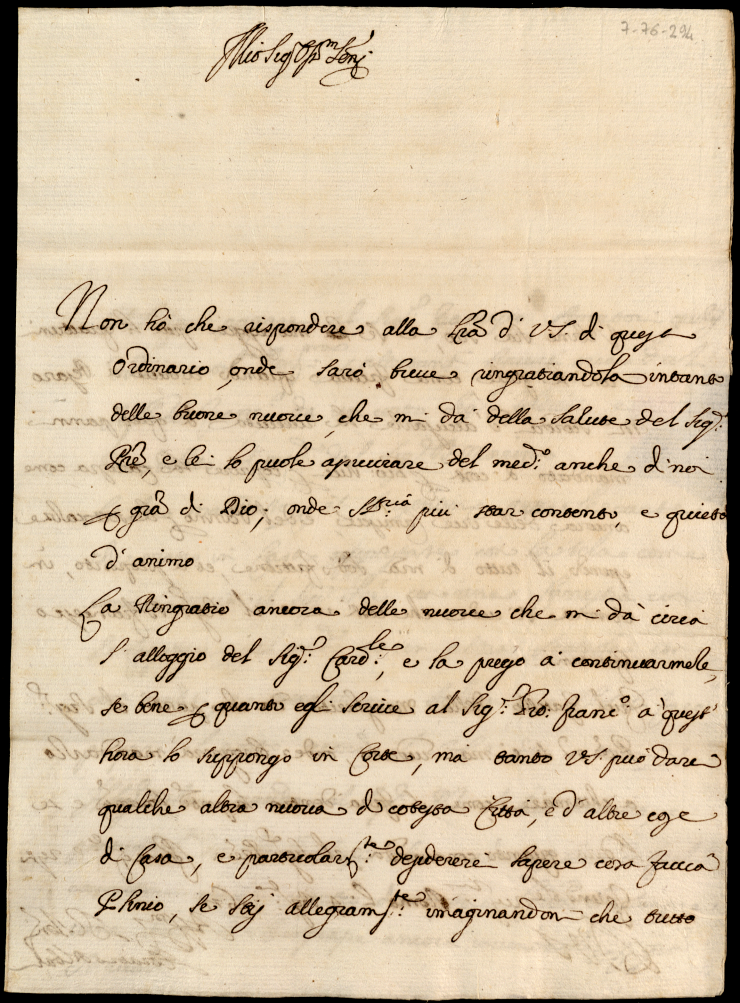 7-76-294
Illio Sig.
Non hò che rispondere alla Lrã d' VS. di quest
Ordinario, onde sarò breve ringratiandola intanto
delle buone nuove, che mi dà della salute del Sig.r
Prē, e lei lo puole assicurare del med.o anche di noi
grã di Dio, onde più star contento, e quieto
d'animo
La Ringratio ancora delle nuove che mi dà circa
l'alloggio del Sig.r Card.le, e la prego à continuarmele,
se bene quanto egli scrive al Sig.r Gio: Franc.o à quest'
hora lo suppongo in Corte, mà tanto VS. può dare
qualche altra nuova di cotesta Città, e d'altre cose
di Casa, e particolarm.te desidererei sapere cosa faccia
Plinio, se stij allegram.te imaginandomi che tutto